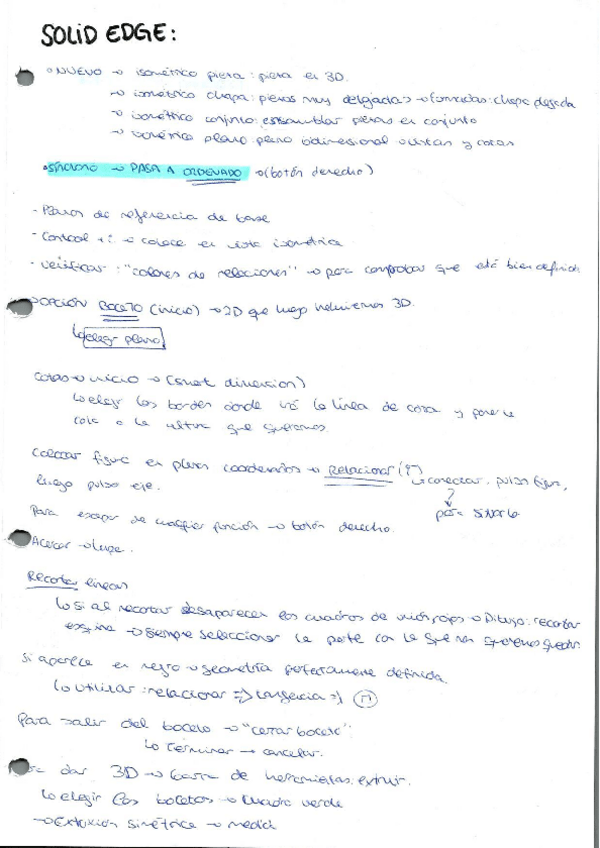 SOLID EDGE:
• NUEVO → isométrico pieza: pieza en 3D.
→ isométrico chapa: piezas muy delgadas → formatos: chapa plegada
→ isométrico conjunto: ensamblar piezas en conjunto
→ isométrico plano: plano bidimensional vistas y cotas
• SÍNCRONO → PASA A ORDENADO → (botón derecho)
- Planos de referencia de base
- Control + i → coloca en vista isométrica
- verificar: "colores de relaciones" → para comprobar que está bien definido
OPCIÓN BOCETO (inicio) → 2D que luego haremos 3D.
↳ elegir plano
cotas → inicio → (smart dimension)
↳ elegir los bordes donde irá la línea de cota y poner la
cota a la altura que queramos.
Colocar figura en planos coordenados → Relacionar (?)
↳ conectar. pulso figura,
luego pulso eje.
para situarlo
Para escapar de cualquier función → botón derecho.
Acercar → lupa.
Recortar líneas
↳ Si al recortar desaparecen los cuadros de rojos → Dibujo: recortar
esquina → siempre seleccionar la parte con la que nos queremos quedar.
Si aparece en negro → geometría perfectamente definida.
↳ Utilizar: relacionar => tangencia =>
Para salir del boceto → "cerrar boceto":
↳ Terminar → cancelar.
Para dar 3D → barra de herramientas: extruir.
↳ elegir los bocetos → cuadro verde
→ Extrusión simétrica → medida